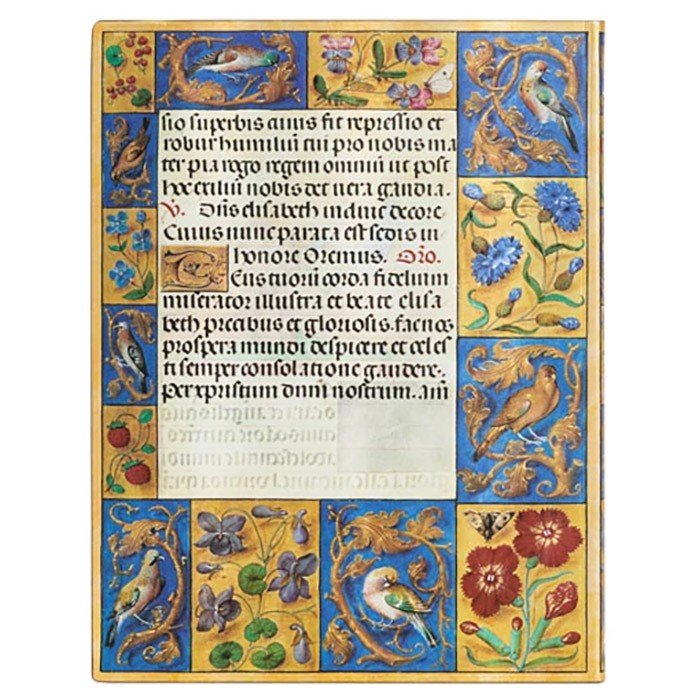 sio superbis cuius fit repressio et
robur humiliū tui pro nobis ma
ter pia rogo regem omniū ut post
hoc exiliū nobis det vera gaudia.
V. Dñs elisabeth induit decore
Cuius nunc parata est sedis in
honore Oremus. Orō.
Tuorū corda fidelium
miserator illustra et beate elisa
beth precibus et gloriosis. fac nos
prospera mundi despicere et celes
ti semper consolatione gaudere.
Per xpristum dnm̄ nostrum. am̄